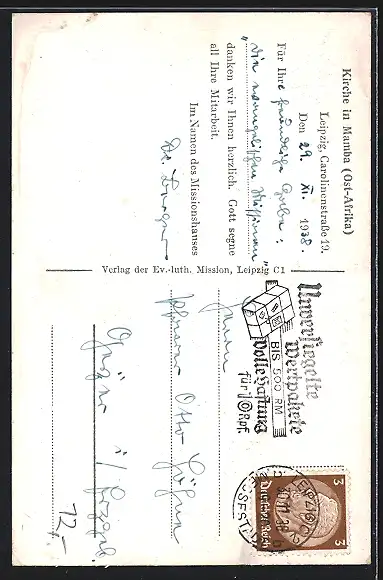 Kirche in Mamba (Ost-Afrika)
Leipzig, Carolinenstraße 19.
Den 29. XI. 1938.
Für Ihre freundliche Gabe:
"Die evangelischen Missionen"
danken wir Ihnen herzlich. Gott segne
all Ihre Mitarbeit.
Im Namen des Missionshauses
Verlag der Ev.-luth. Mission, Leipzig C1
Unversiegelte
Wertpakete
BIS 500 RM
Volle Haftung
für 10 Rpf.
3 3
Deutsches Reich
LEIPZIG
Herrn
Pfarrer Otto
12.-